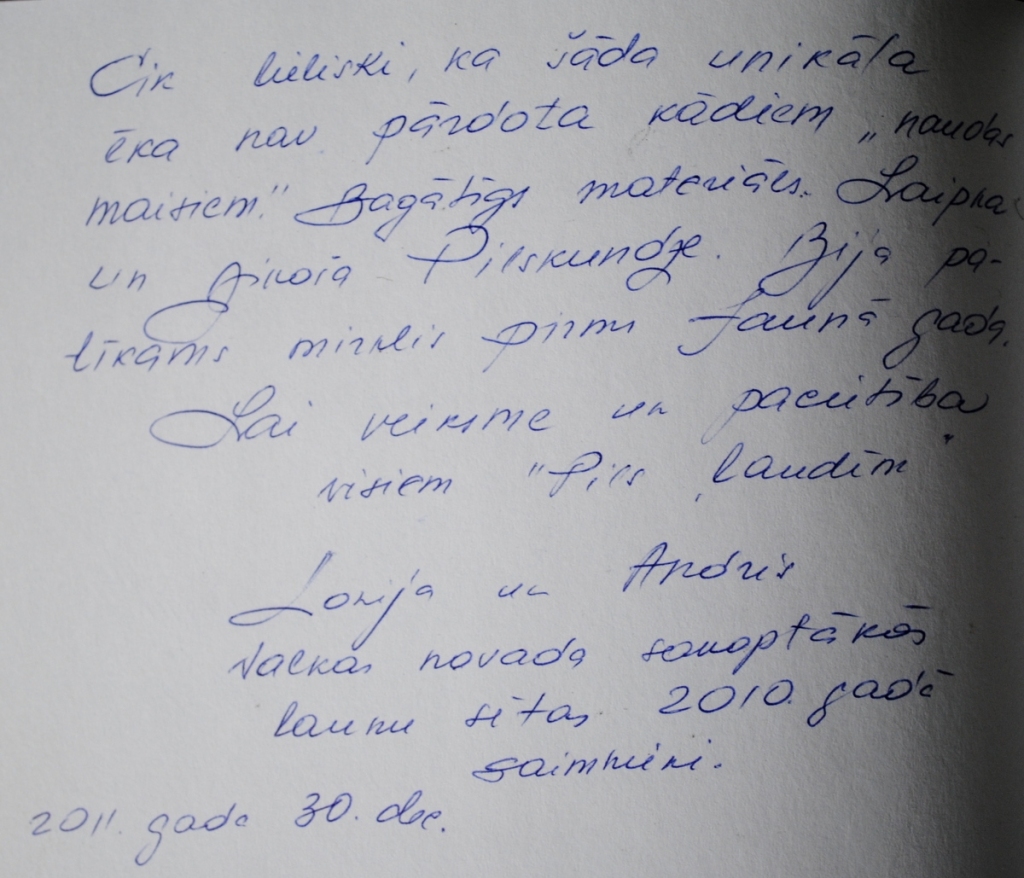 Cik lieliski, ka šāda unikāla
ēka nav pārdota kādiem „naudas
maisiem." Bagātīgs materiāls. Laipna
un zinoša Pilskundze. Bija pa-
tīkams mirklis pirms Jaunā gada.
Lai veiksme un pacietība
visiem "Pils ļaudīm"
Lonija un Andris
Valkas novada sakoptākās
lauku sētas 2010. gadā
saimnieki.
2011. gada 30. dec.